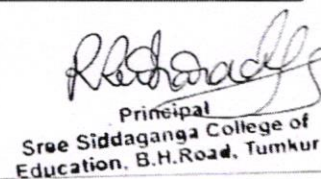 Principal
Sree Siddaganga College of
Education, B.H.Road, Tumkur